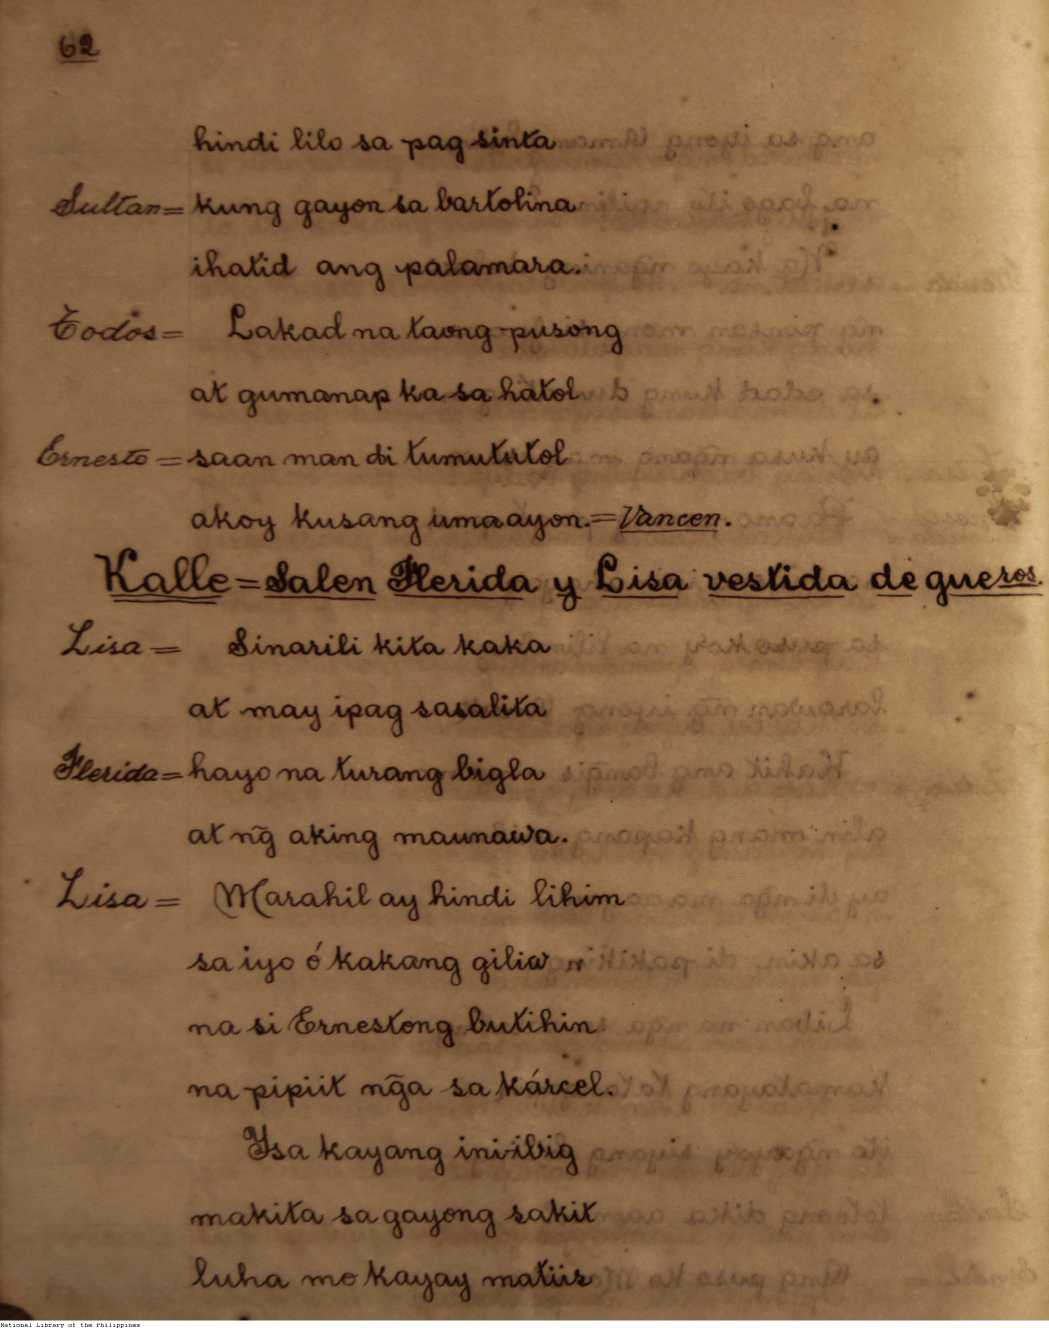 62
hindi lilo sa pag sinta
Sultan= kung gayon sa bartolina
ihatid ang palamara.
Todos= Lakad na taong pusong
at gumanap ka sa hatol
Ernesto = saan man di tumututol
akoy kusang umaayon.=Vancen.
Kalle = Salen Flerida y Lisa vestida de gueros.
Lisa = Sinarili kita kaka
at may ipag sasalita
Flerida= hayo na turang bigla
at ng̃ aking maunawa.
Lisa = Marahil ay hindi lihim
sa iyo ó kakang giliw
na si Ernestong butihin
na pipiit ng̃a sa kárcel.
Ysa kayang iniibig
makita sa gayong sakit
luha mo kayay matiis
National Library of the Philippines